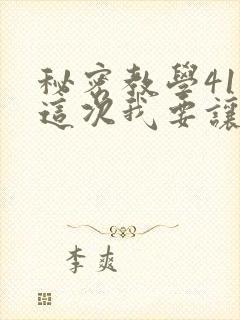 秘密教學41
這次我要讓
李爽